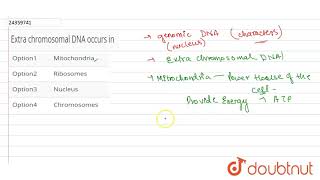 24359741
Extra chromosomal DNA occurs in
Option1 Mitochondria
Option2 Ribosomes
Option3 Nucleus
Option4 Chromosomes
→ genomic DNA (characters)
(nucleus)
→ Extra chromosomal DNA)
→ Mitochondria — Power House of the
cell -
Provide Energy → ATP
doubtnut